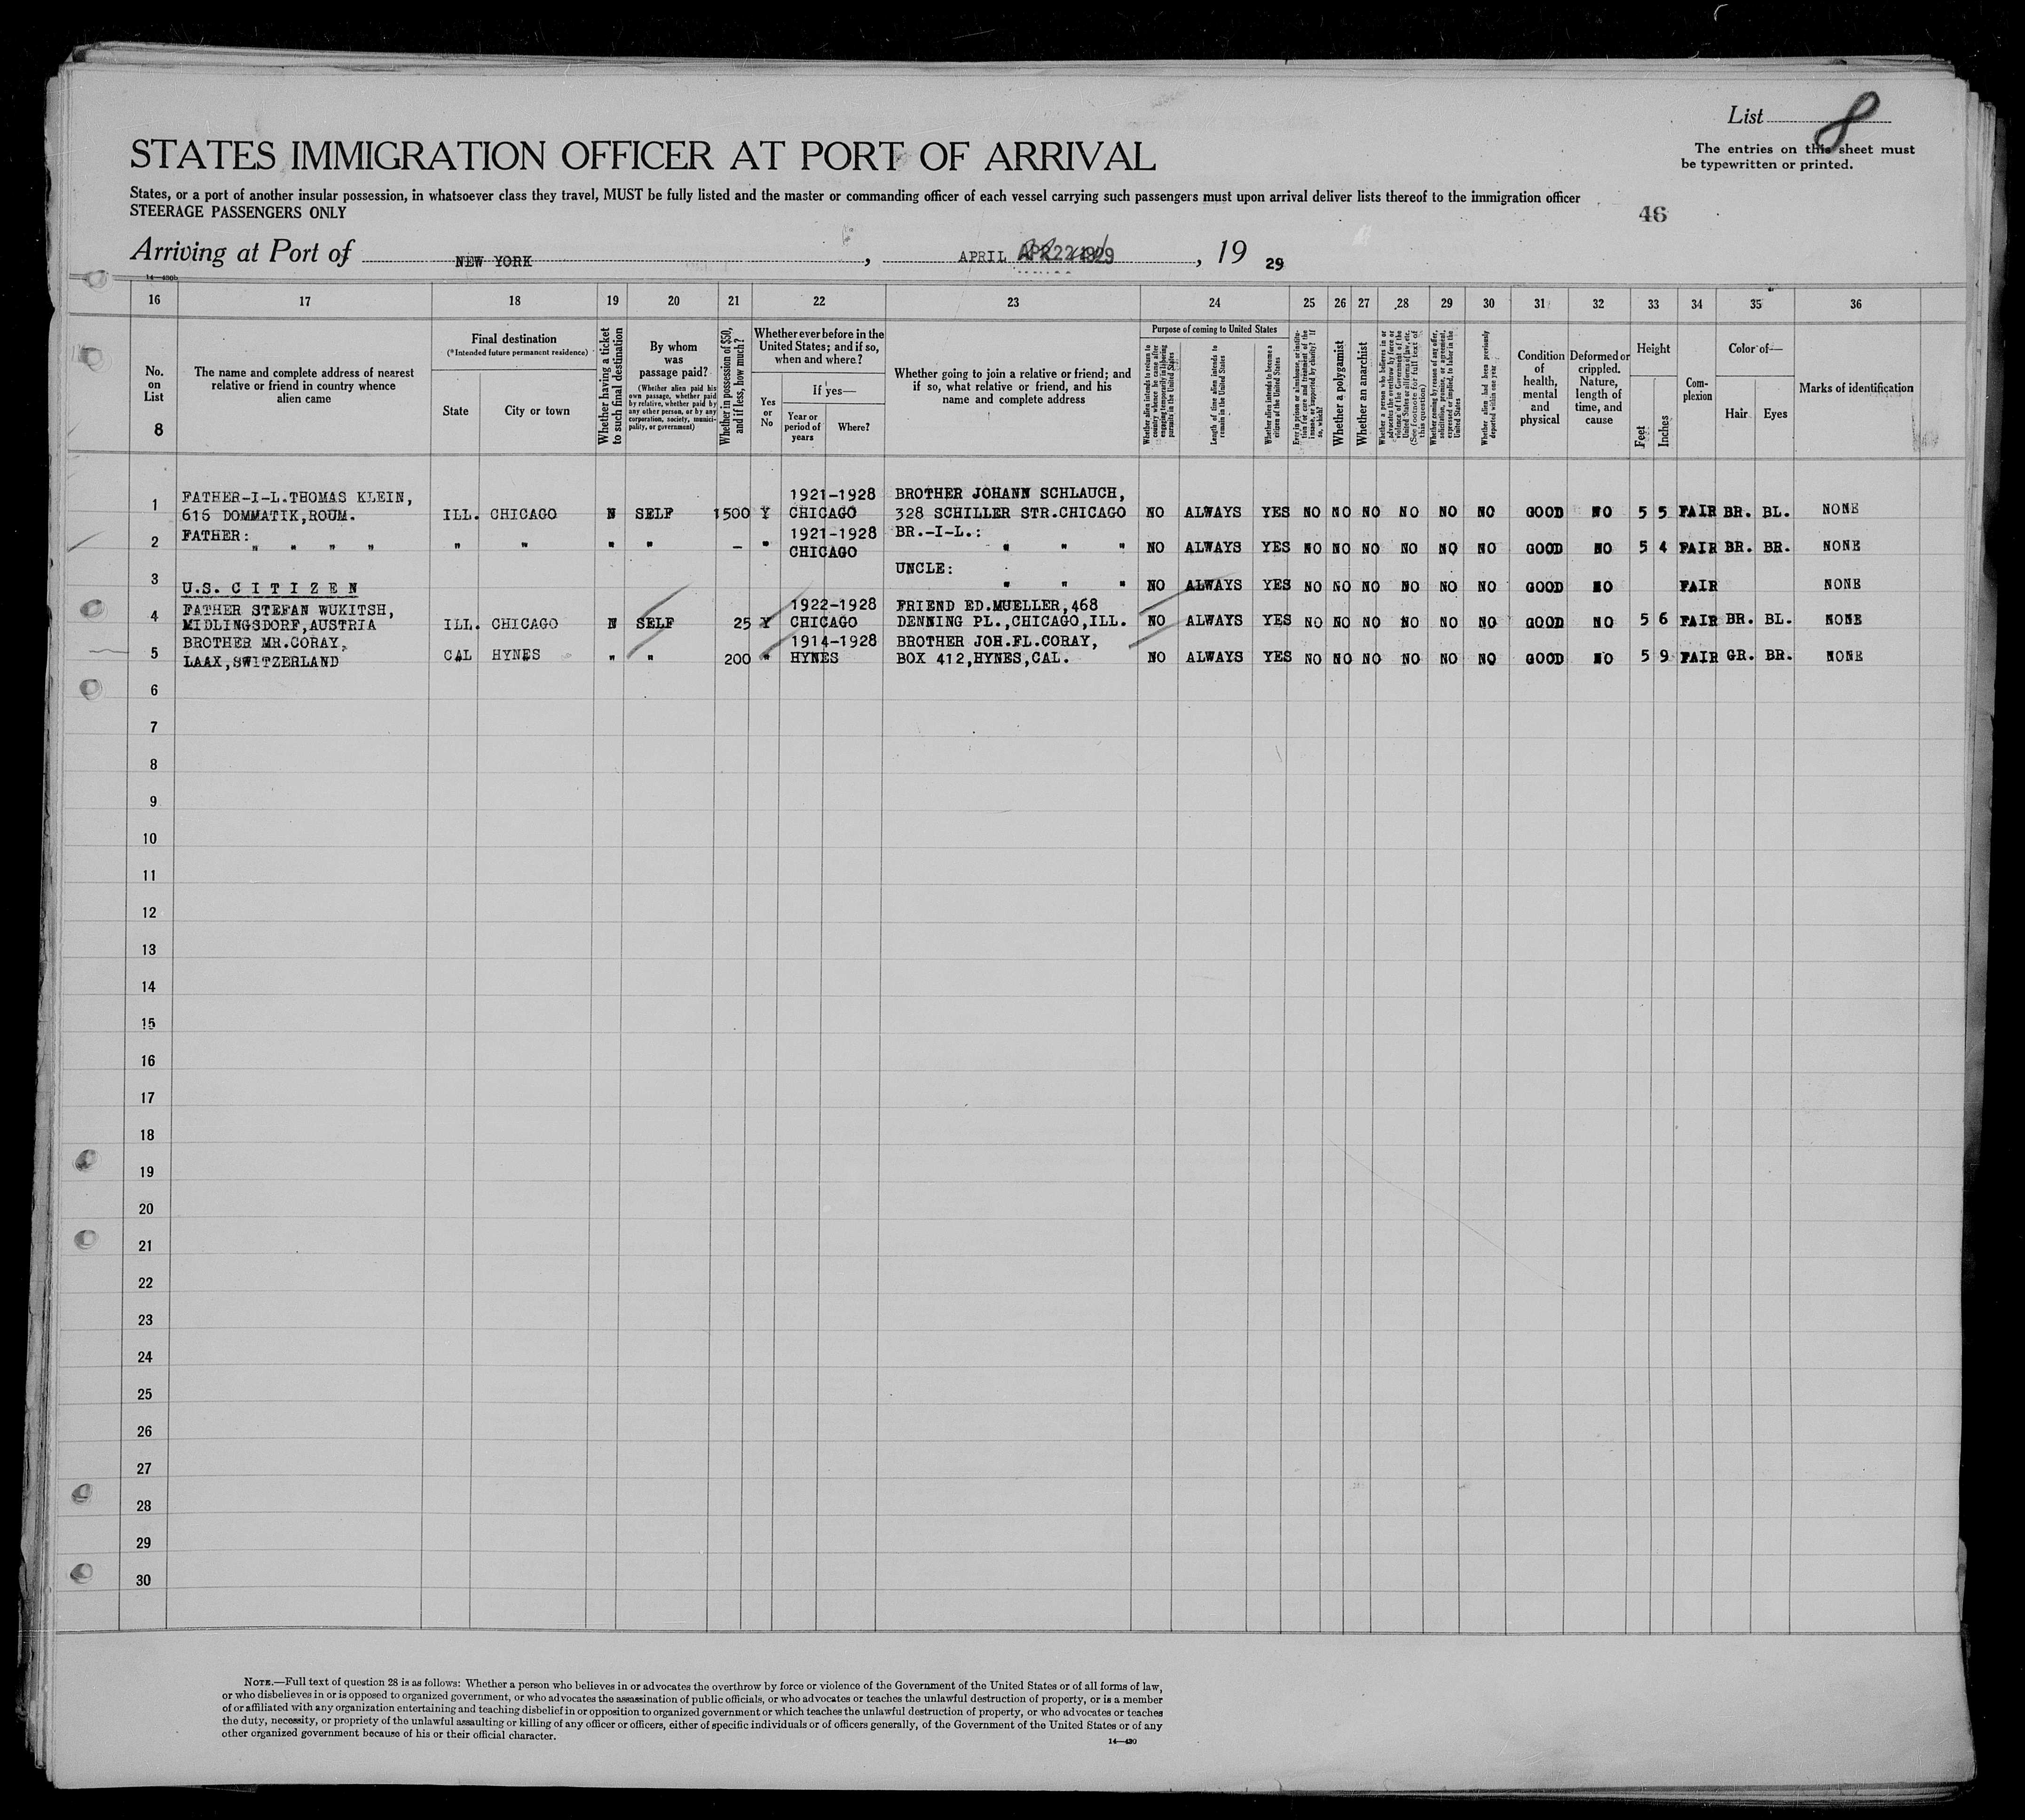 List 8
The entries on this sheet must
be typewritten or printed.
STATES IMMIGRATION OFFICER AT PORT OF ARRIVAL
States, or a port of another insular possession, in whatsoever class they travel, MUST be fully listed and the master or commanding officer of each vessel carrying such passengers must upon arrival deliver lists thereof to the immigration officer
STEERAGE PASSENGERS ONLY
46
Arriving at Port of NEW YORK, APRIL APR 22 1929, 19 29
14—430b
16 17 18 19 20 21 22 23 24 25 26 27 28 29 30 31 32 33 34 35 36
No.
on
List
8
The name and complete address of nearest
relative or friend in country whence
alien came
Final destination
(*Intended future permanent residence)
State
City or town
Whether having a ticket
to such final destination
By whom
was
passage paid?
(Whether alien paid his
own passage, whether paid
by relative, whether paid by
any other person, or by any
corporation, society, munici-
pality, or government)
Whether in possession of $50,
and if less, how much?
Whether ever before in the
United States; and if so,
when and where?
Yes
or
No
If yes—
Year or
period of
years
Where?
Whether going to join a relative or friend; and
if so, what relative or friend, and his
name and complete address
Purpose of coming to United States
Whether alien intends to return to
country whence he came after
engaging temporarily in laboring
pursuits in the United States
Length of time alien intends to
remain in the United States
Whether alien intends to become a
citizen of the United States
Ever in prison or almshouse, or institu-
tion for care and treatment of the
insane, or supported by charity? If
so, which?
Whether a polygamist
Whether an anarchist
Whether a person who believes in or
advocates the overthrow by force or
violence of the Government of the
United States or all forms of law, etc.
(See footnote for full text of
this question)
Whether coming by reason of any offer,
solicitation, promise, or agreement,
expressed or implied, to labor in the
United States
Whether alien had been previously
deported within one year
Condition
of
health,
mental
and
physical
Deformed or
crippled.
Nature,
length of
time, and
cause
Height
Feet
Inches
Com-
plexion
Color of—
Hair
Eyes
Marks of identification
FATHER-I-L.THOMAS KLEIN, 1921-1928 BROTHER JOHANN SCHLAUCH,
1 616 DOMMATIK,ROUM. ILL. CHICAGO N SELF 1500 Y CHICAGO 328 SCHILLER STR.CHICAGO NO ALWAYS YES NO NO NO NO NO NO GOOD NO 5 5 FAIR BR. BL. NONE
FATHER: " " " " 1921-1928 BR.-I-L.:
2 " " " " — " CHICAGO " " " NO ALWAYS YES NO NO NO NO NO NO GOOD NO 5 4 FAIR BR. BR. NONE
UNCLE:
3 U.S. C I T I Z E N " " " NO ALWAYS YES NO NO NO NO NO NO GOOD NO FAIR NONE
FATHER STEFAN WUKITSH, 1922-1928 FRIEND ED.MUELLER,468
4 MIDLINGSDORF,AUSTRIA ILL. CHICAGO N SELF 25 Y CHICAGO DENNING PL.,CHICAGO,ILL. NO ALWAYS YES NO NO NO NO NO NO GOOD NO 5 6 FAIR BR. BL. NONE
BROTHER MR.CORAY, 1914-1928 BROTHER JOH.FL.CORAY,
5 LAAX,SWITZERLAND CAL HYNES " " 200 " HYNES BOX 412,HYNES,CAL. NO ALWAYS YES NO NO NO NO NO NO GOOD NO 5 9 FAIR GR. BR. NONE
6
7
8
9
10
11
12
13
14
15
16
17
18
19
20
21
22
23
24
25
26
27
28
29
30
NOTE.—Full text of question 28 is as follows: Whether a person who believes in or advocates the overthrow by force or violence of the Government of the United States or of all forms of law,
or who disbelieves in or is opposed to organized government, or who advocates the assassination of public officials, or who advocates or teaches the unlawful destruction of property, or is a member
of or affiliated with any organization entertaining and teaching disbelief in or opposition to organized government or which teaches the unlawful destruction of property, or who advocates or teaches
the duty, necessity, or propriety of the unlawful assaulting or killing of any officer or officers, either of specific individuals or of officers generally, of the Government of the United States or of any
other organized government because of his or their official character.
14—430